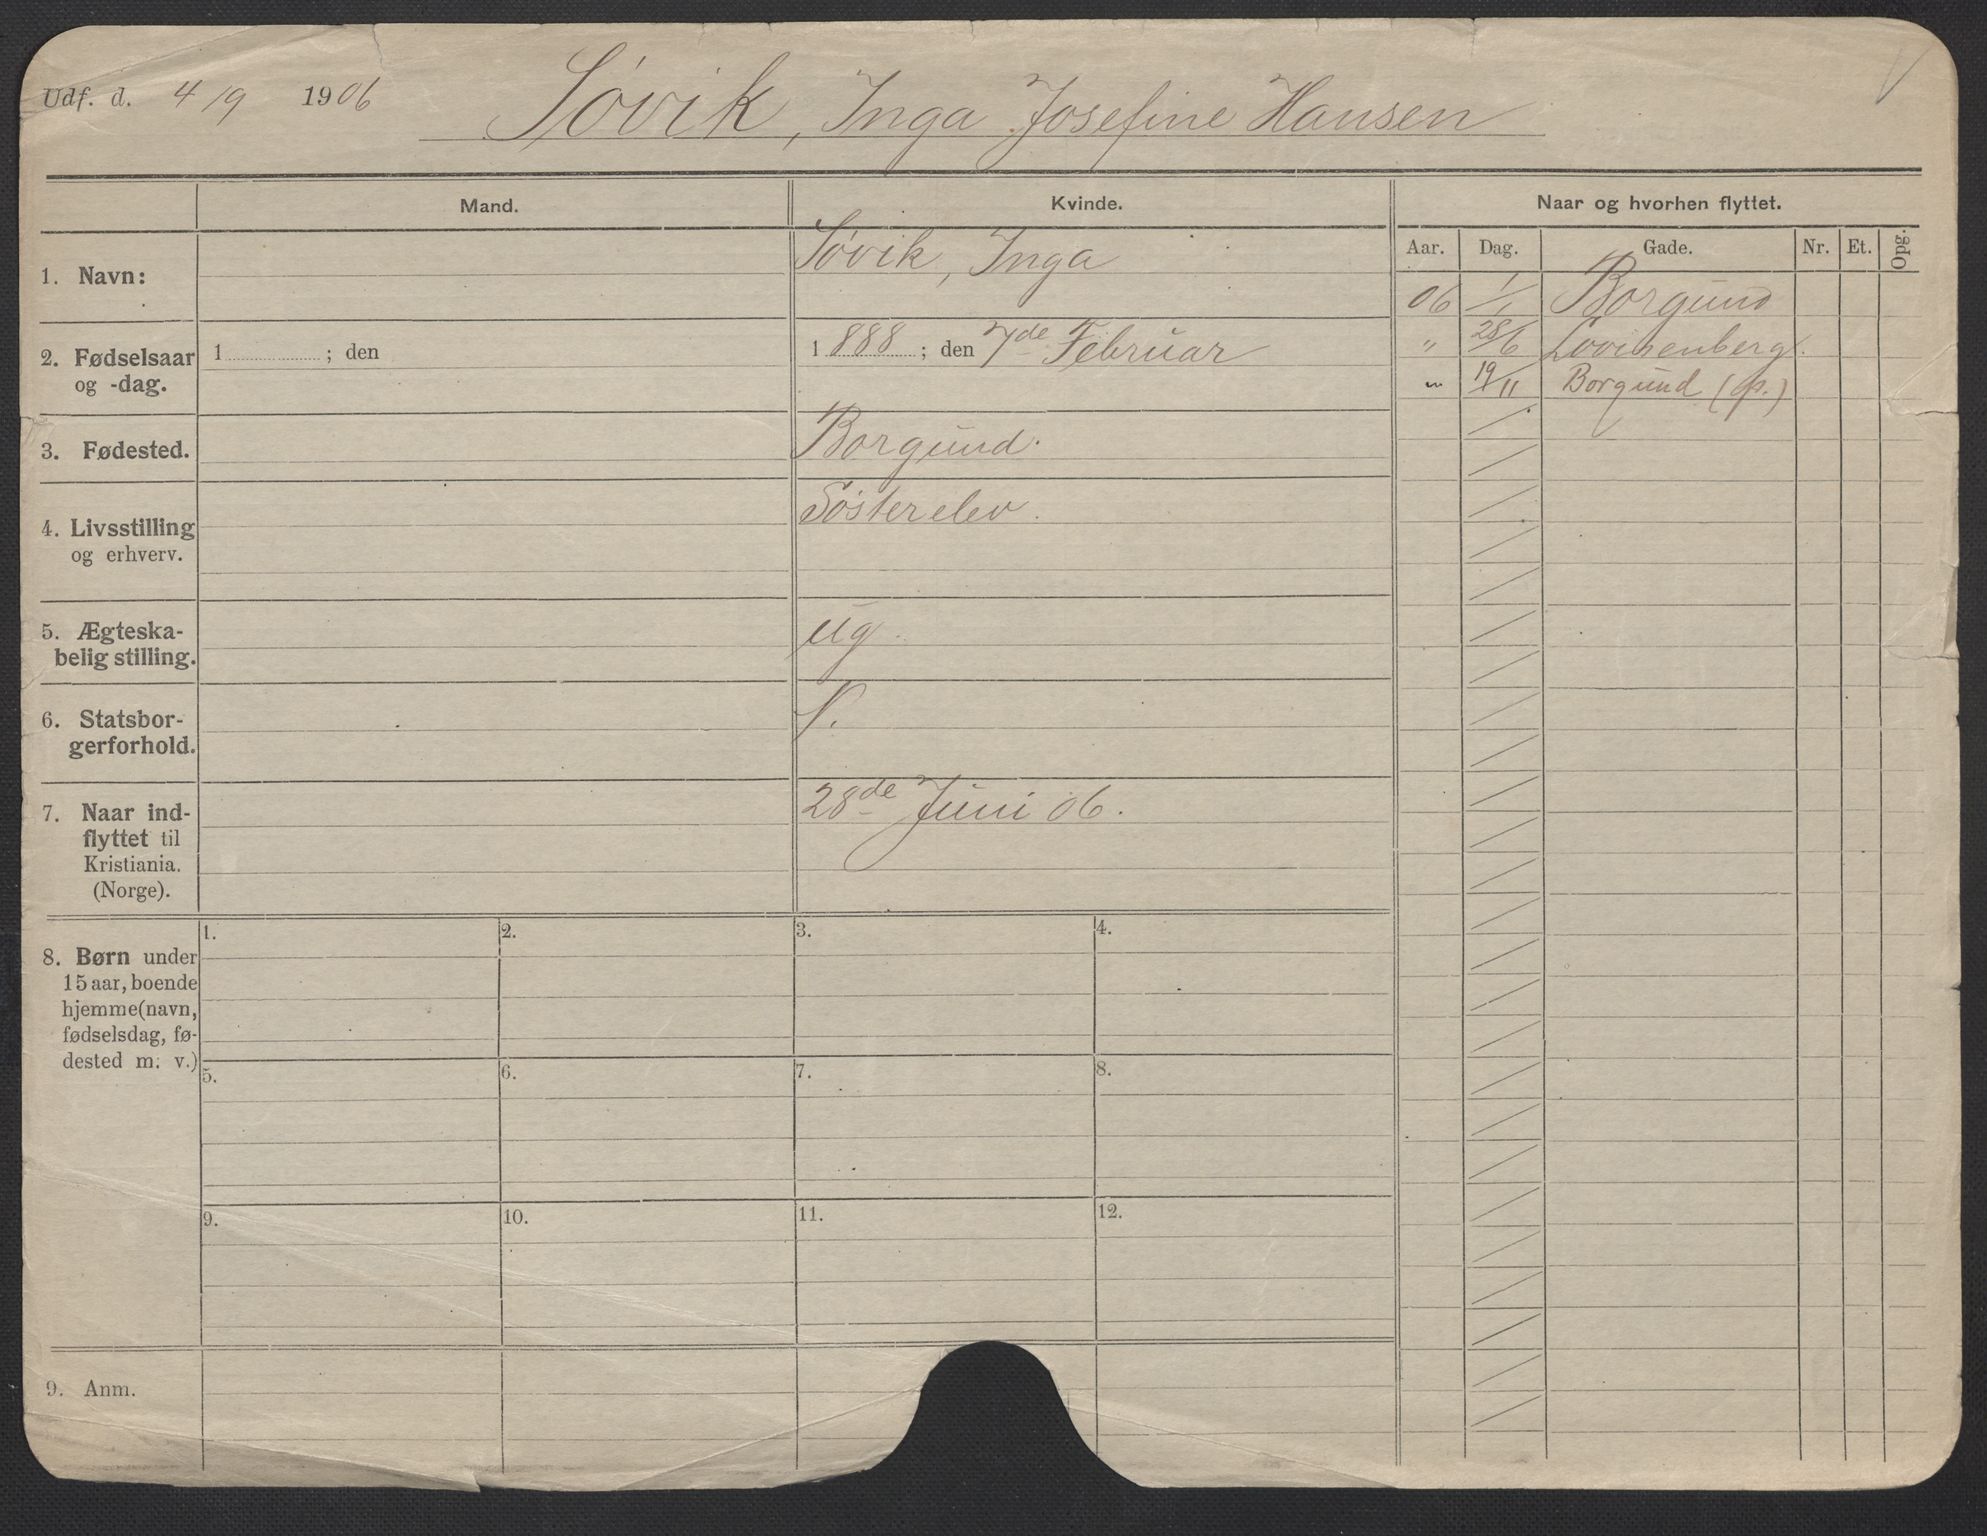 Udf. d. 4/9 1906 Søvik, Inga Josefine Hansen
Mand. Kvinde. Naar og hvorhen flyttet.
Aar. Dag. Gade. Nr. Et. Opg.
1. Navn: Søvik, Inga
06 1/1 Borgund
" 28/6 Lovisenberg.
" 19/11 Borgund (fp.)
2. Fødselsaar og -dag. 1 ; den 1888 ; den 7de Februar
3. Fødested. Borgund.
4. Livsstilling og erhverv. Søsterelev.
5. Ægteska-
belig stilling. ug.
6. Statsbor-
gerforhold. N.
7. Naar ind-
flyttet til
Kristiania.
(Norge). 28de Juni 06.
8. Børn under
15 aar, boende
hjemme (navn,
fødselsdag, fø-
dested m. v.)
1. 2. 3. 4.
5. 6. 7. 8.
9. 10. 11. 12.
9. Anm.